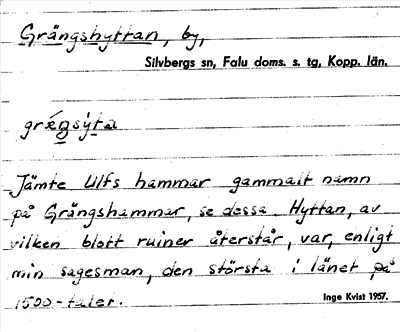 Grängshyttan, by,
Silvbergs sn, Falu doms. s. tg, Kopp. län.
grä́ŋsỳta
Jämte Ulfs hammar gammalt namn
på Grängshammar, se dessa. Hyttan, av
vilken blott ruiner återstår, var, enligt
min sagesman, den största i länet på
1500-talet.
Inge Kvist 1957.